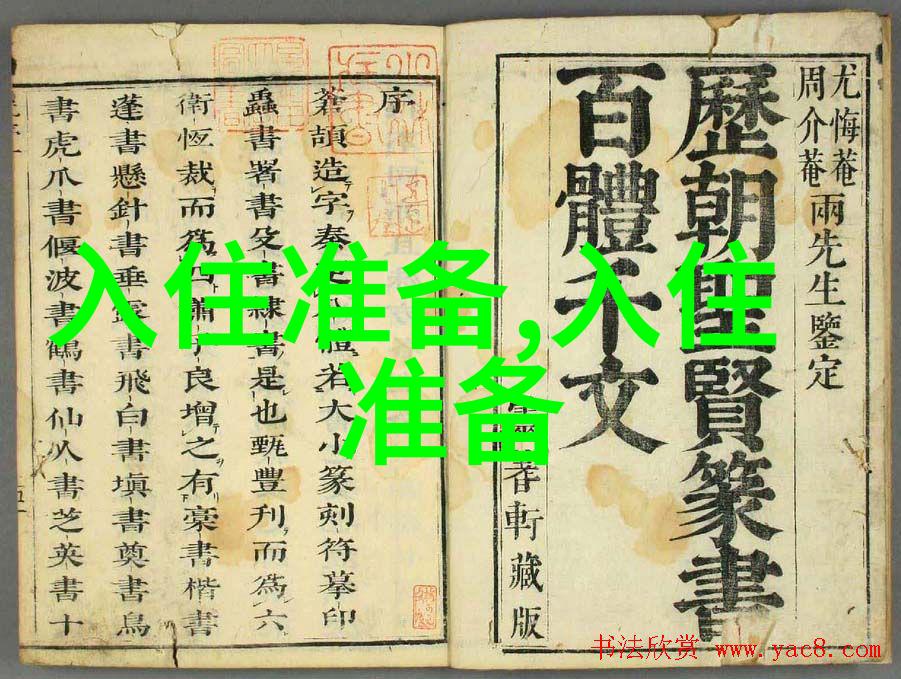 尤悔菴
周介菴
兩先生鑒定
歷朝聖賢篆書
百體千文
軒藏版
序
蒼頡造字秦
體若大小篆刻符摹印
蟲書署書殳書隸書是也甄豐刋而為六
衛恆裁而為四蕭子良增之有槀書楷書
蓬書懸針書垂露書飛白書塡書奠書鳥
書虎爪書偃波書鶴書仙人書芝英書十
入住准备,入住
准备
书法欣赏 www.yac8.com